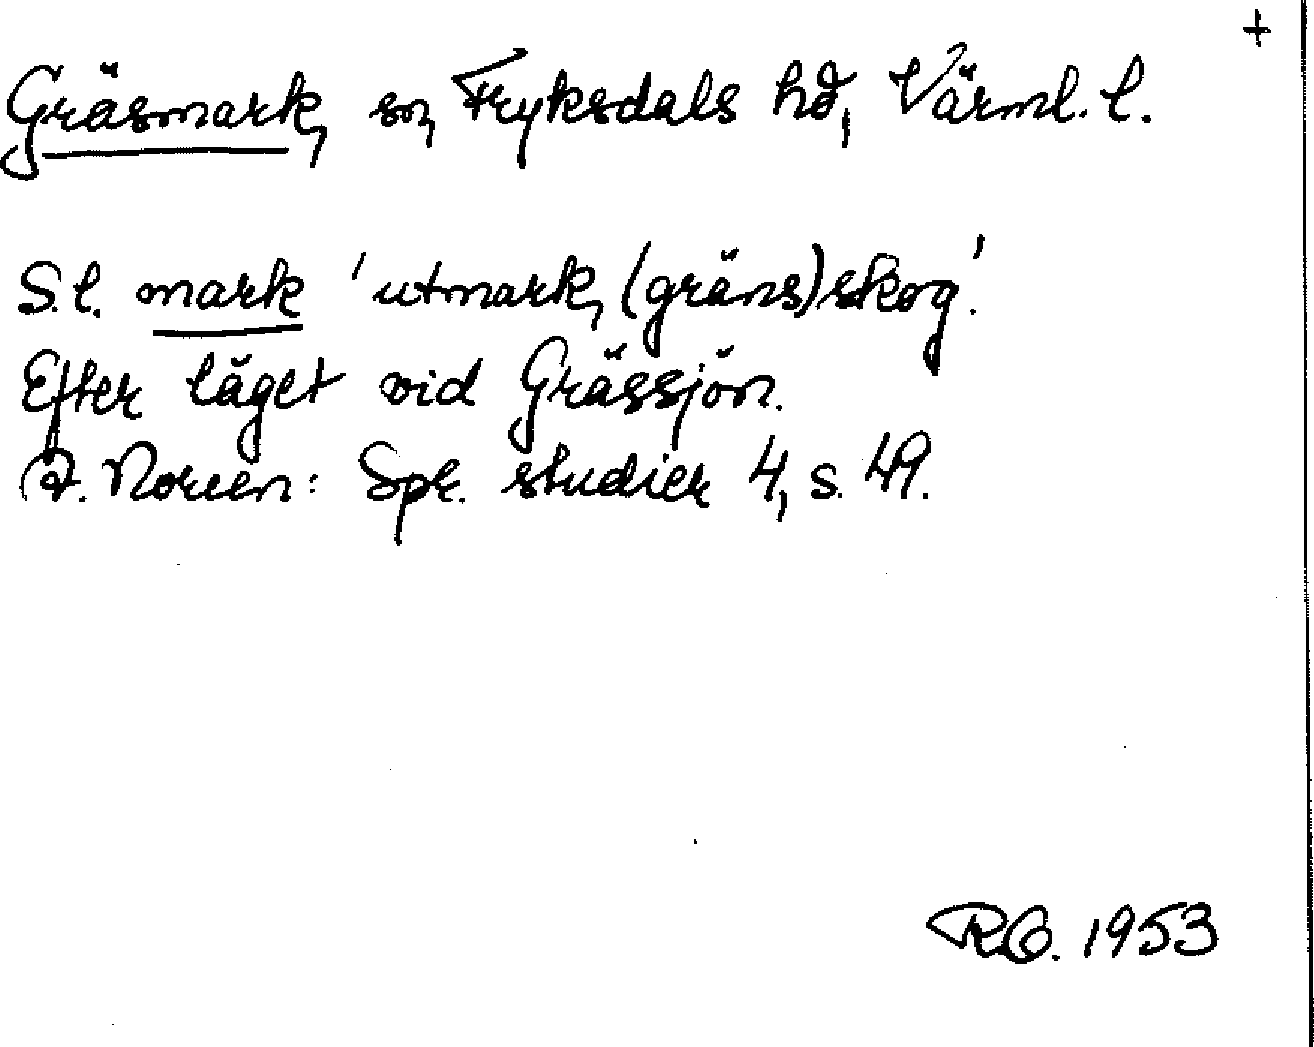 +
Gräsmark, sn, Fryksdals hd, Värml. l.
S.l. mark 'utmark, (gräns)skog'.
Efter läget vid Grässjön.
A. Noreen: Spr. studier 4, s. 49.
1953